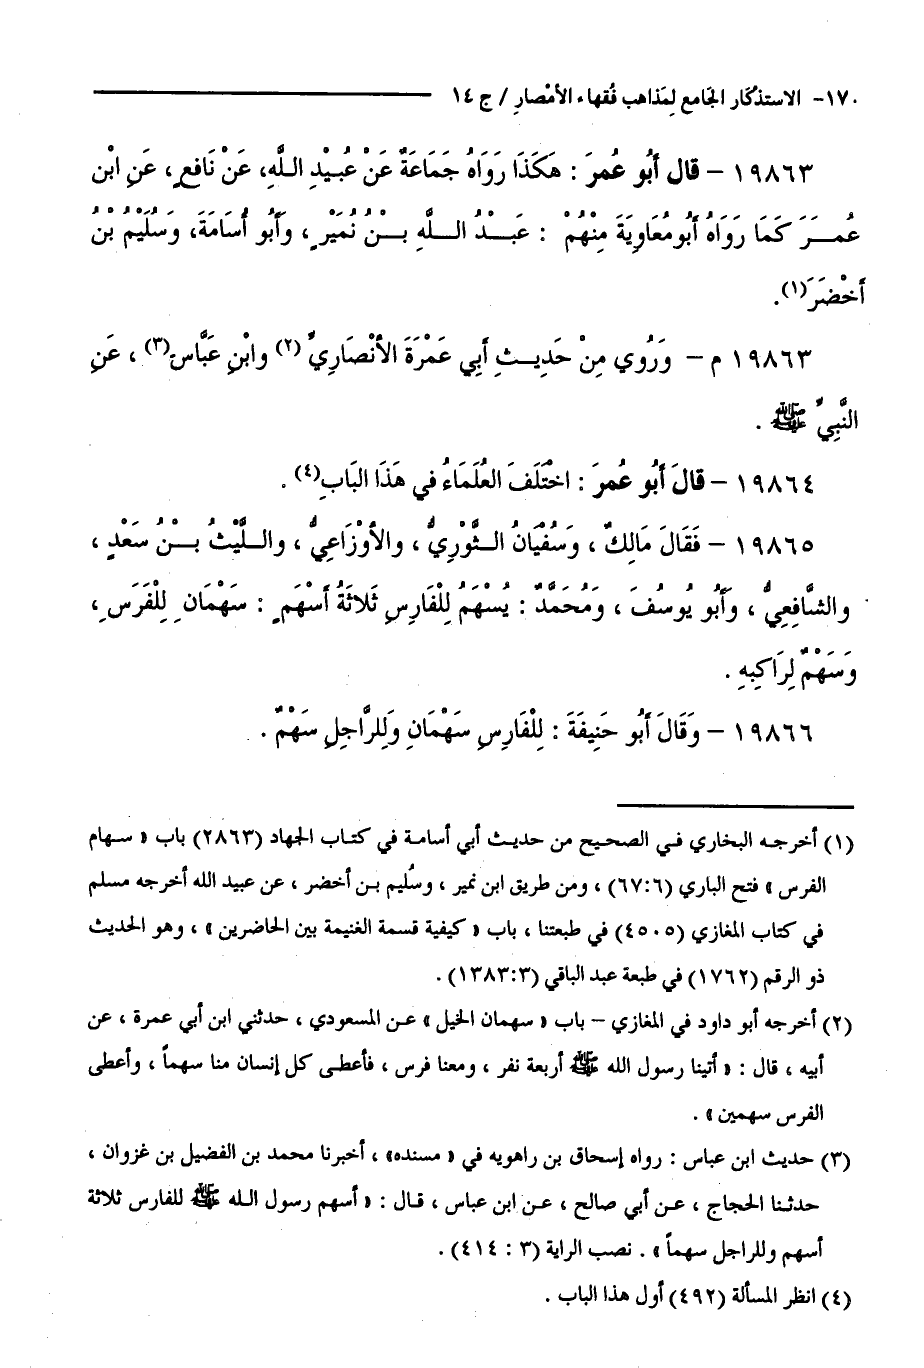 ١٧٠- الاستذكار الجامع لِمَذاهب فُقهاء الأمْصارِ / ج ١٤
١٩٨٦٣ – قال أَبُو عُمرَ : هَكَذَا رَوَاهُ جَمَاعَةٌ عَنْ عُبَيْدِ اللَّهِ، عَنْ نَافعٍ، عَنِ ابْنِ
عُمَرَ كَمَا رَوَاهُ أَبُو مُعَاوِيَةَ مِنْهُمْ : عَبْدُ اللَّهِ بْنُ نُمَيْرٍ ، وَأَبُو أُسَامَةَ، وَسُلَيْمُ بْنُ
أَخْضَرَ(١).
١٩٨٦٣ م – وَرُوي مِنْ حَدِيثِ أَبِي عَمْرَةَ الأَنْصَارِيِّ (٢) وابْنِ عَبَّاسٍ(٣) ، عَنِ
النَّبِيِّ ﷺ .
١٩٨٦٤ – قالَ أَبُو عُمرَ : اخْتَلَفَ العُلَمَاءُ في هَذَا البَابِ(٤) .
١٩٨٦٥ – فَقَالَ مَالِكٌ ، وَسُفْيَانُ الثَّوْرِيُّ ، والأَوْزَاعِيُّ ، واللَّيْثُ بْنُ سَعْدٍ ،
والشَّافِعِيُّ ، وَأَبُو يُوسُفَ ، وَمُحَمَّدٌ : يُسْهَمُ لِلْفَارِسِ ثَلاثَةُ أَسْهُمٍ : سَهْمَانِ لِلْفَرَسِ ،
وَسَهْمٌ لِرَاكِبِهِ .
١٩٨٦٦ – وَقَالَ أَبُو حَنِيفَةَ : لِلْفَارِسِ سَهْمَانِ وَلِلرَّاجِلِ سَهْمٌ .
(١) أخرجه البخاري في الصحيح من حديث أبي أسامة في كتاب الجهاد (٢٨٦٣) باب « سهام
الفرس » فتح الباري (٦:٦٧) ، ومن طريق ابن نمير ، وسُليم بن أخضر ، عن عبيد الله أخرجه مسلم
في كتاب المغازي (٤٥٠٥) في طبعتنا ، باب « كيفية قسمة الغنيمة بين الحاضرين » ، وهو الحديث
ذو الرقم (١٧٦٢) في طبعة عبد الباقي (٣:١٣٨٣) .
(٢) أخرجه أبو داود في المغازي – باب « سهمان الخيل » عن المسعودي ، حدثني ابن أبي عمرة ، عن
أبيه ، قال : « أتينا رسول الله ﷺ أربعة نفر ، ومعنا فرس ، فأعطى كل إنسان منا سهماً ، وأعطى
الفرس سهمين » .
(٣) حديث ابن عباس : رواه إسحاق بن راهويه في « مسنده» ، أخبرنا محمد بن الفضيل بن غزوان ،
حدثنا الحجاج ، عن أبي صالح ، عن ابن عباس ، قال : « أسهم رسول الله ﷺ للفارس ثلاثة
أسهم وللراجل سهماً » . نصب الراية (٣ : ٤١٤) .
(٤) انظر المسألة (٤٩٢) أول هذا الباب .